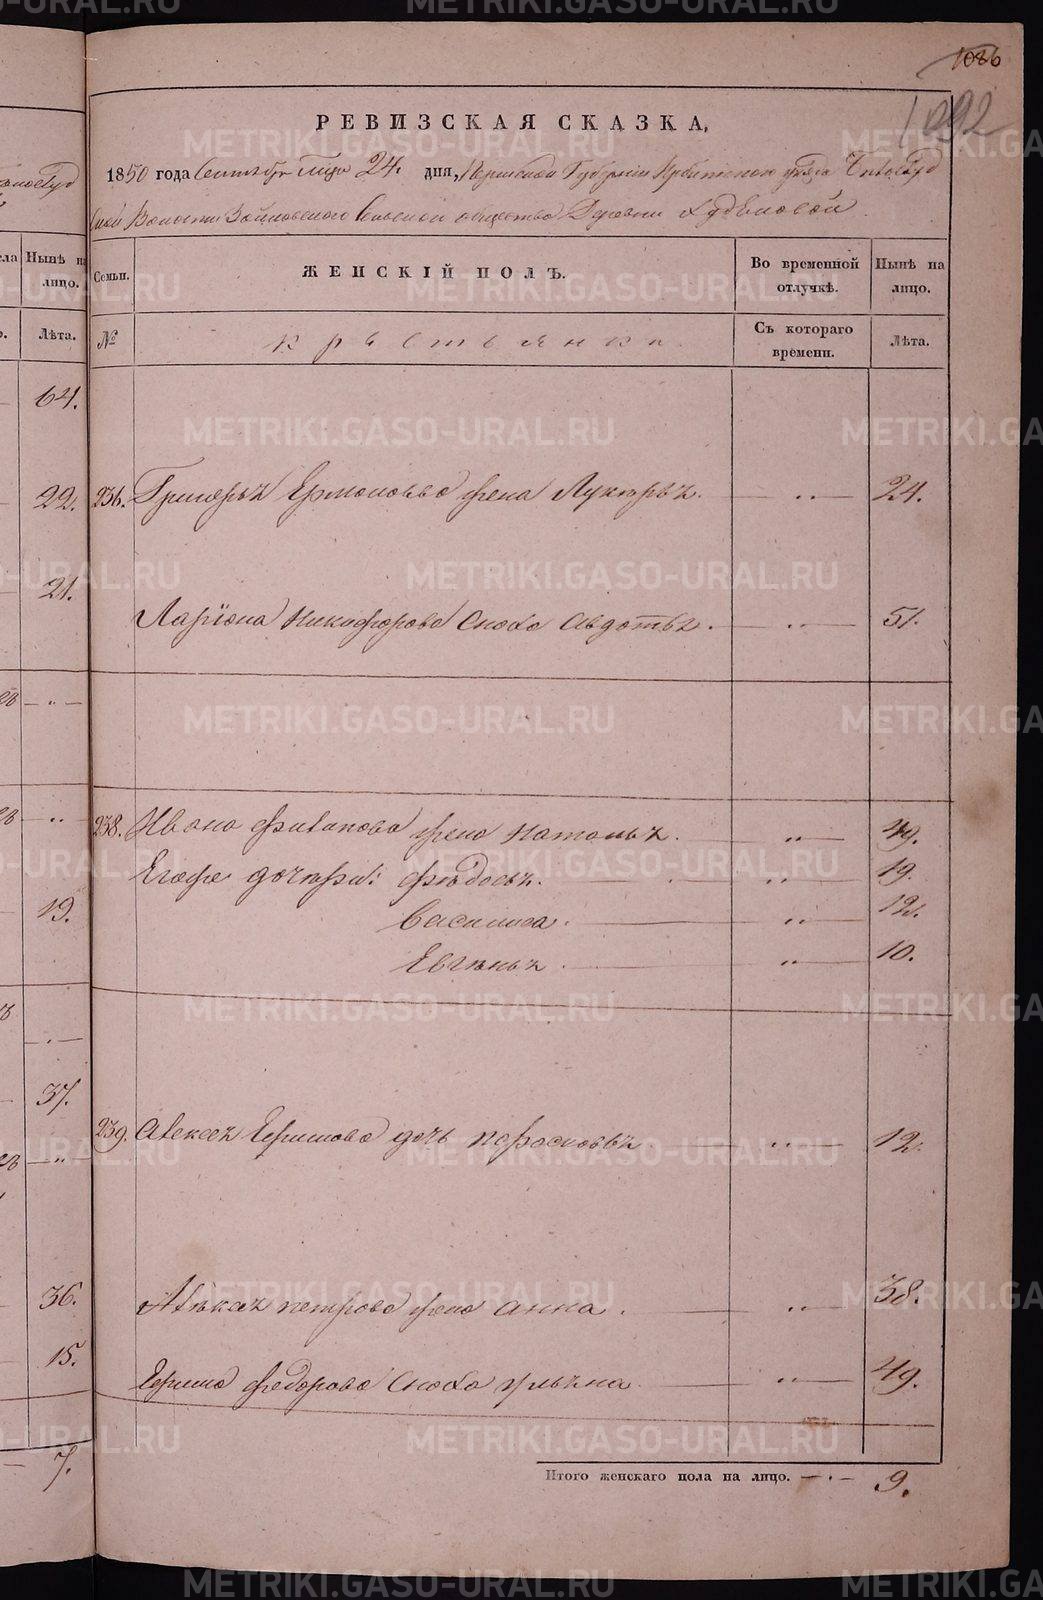 1086
1092
РЕВИЗСКАЯ СКАЗКА,
1850 года Сентября 24. дня, Пермской Губернии Ирбитского уезда
Волости Зайковского Сельского общества Деревни
Семьи. ЖЕНСКІЙ ПОЛЪ. Во временной отлучкѣ. Нынѣ на лицо.
№ Крестьянки. Съ котораго времени. Лѣта.
236. Григорья Ермолаева жена Лукерья. — „ — 24.
Лариона Никифорова Сноха Авдотья. — „ — 51.
238. Ивана Филипова жена Наталья. „ — 49.
Егоже дочери: Федосья. — „ — 19.
Василиса. — „ — 12.
Евгенья. — „ — 10.
239. Алексея Ефимова дочь Парасковья — „ — 12.
Алексея Петрова жена Анна. — „ — 38.
Ефима Федорова Сноха Ульяна — „ — 49.
Итого женскаго пола на лицо. — „ — 9.
Нынѣ на лицо.
Лѣта.
64.
22.
21.
— „ —
— „ —
19.
— „ —
37.
— „ —
36.
15.
— 7.
METRIKI.GASO-URAL.RU